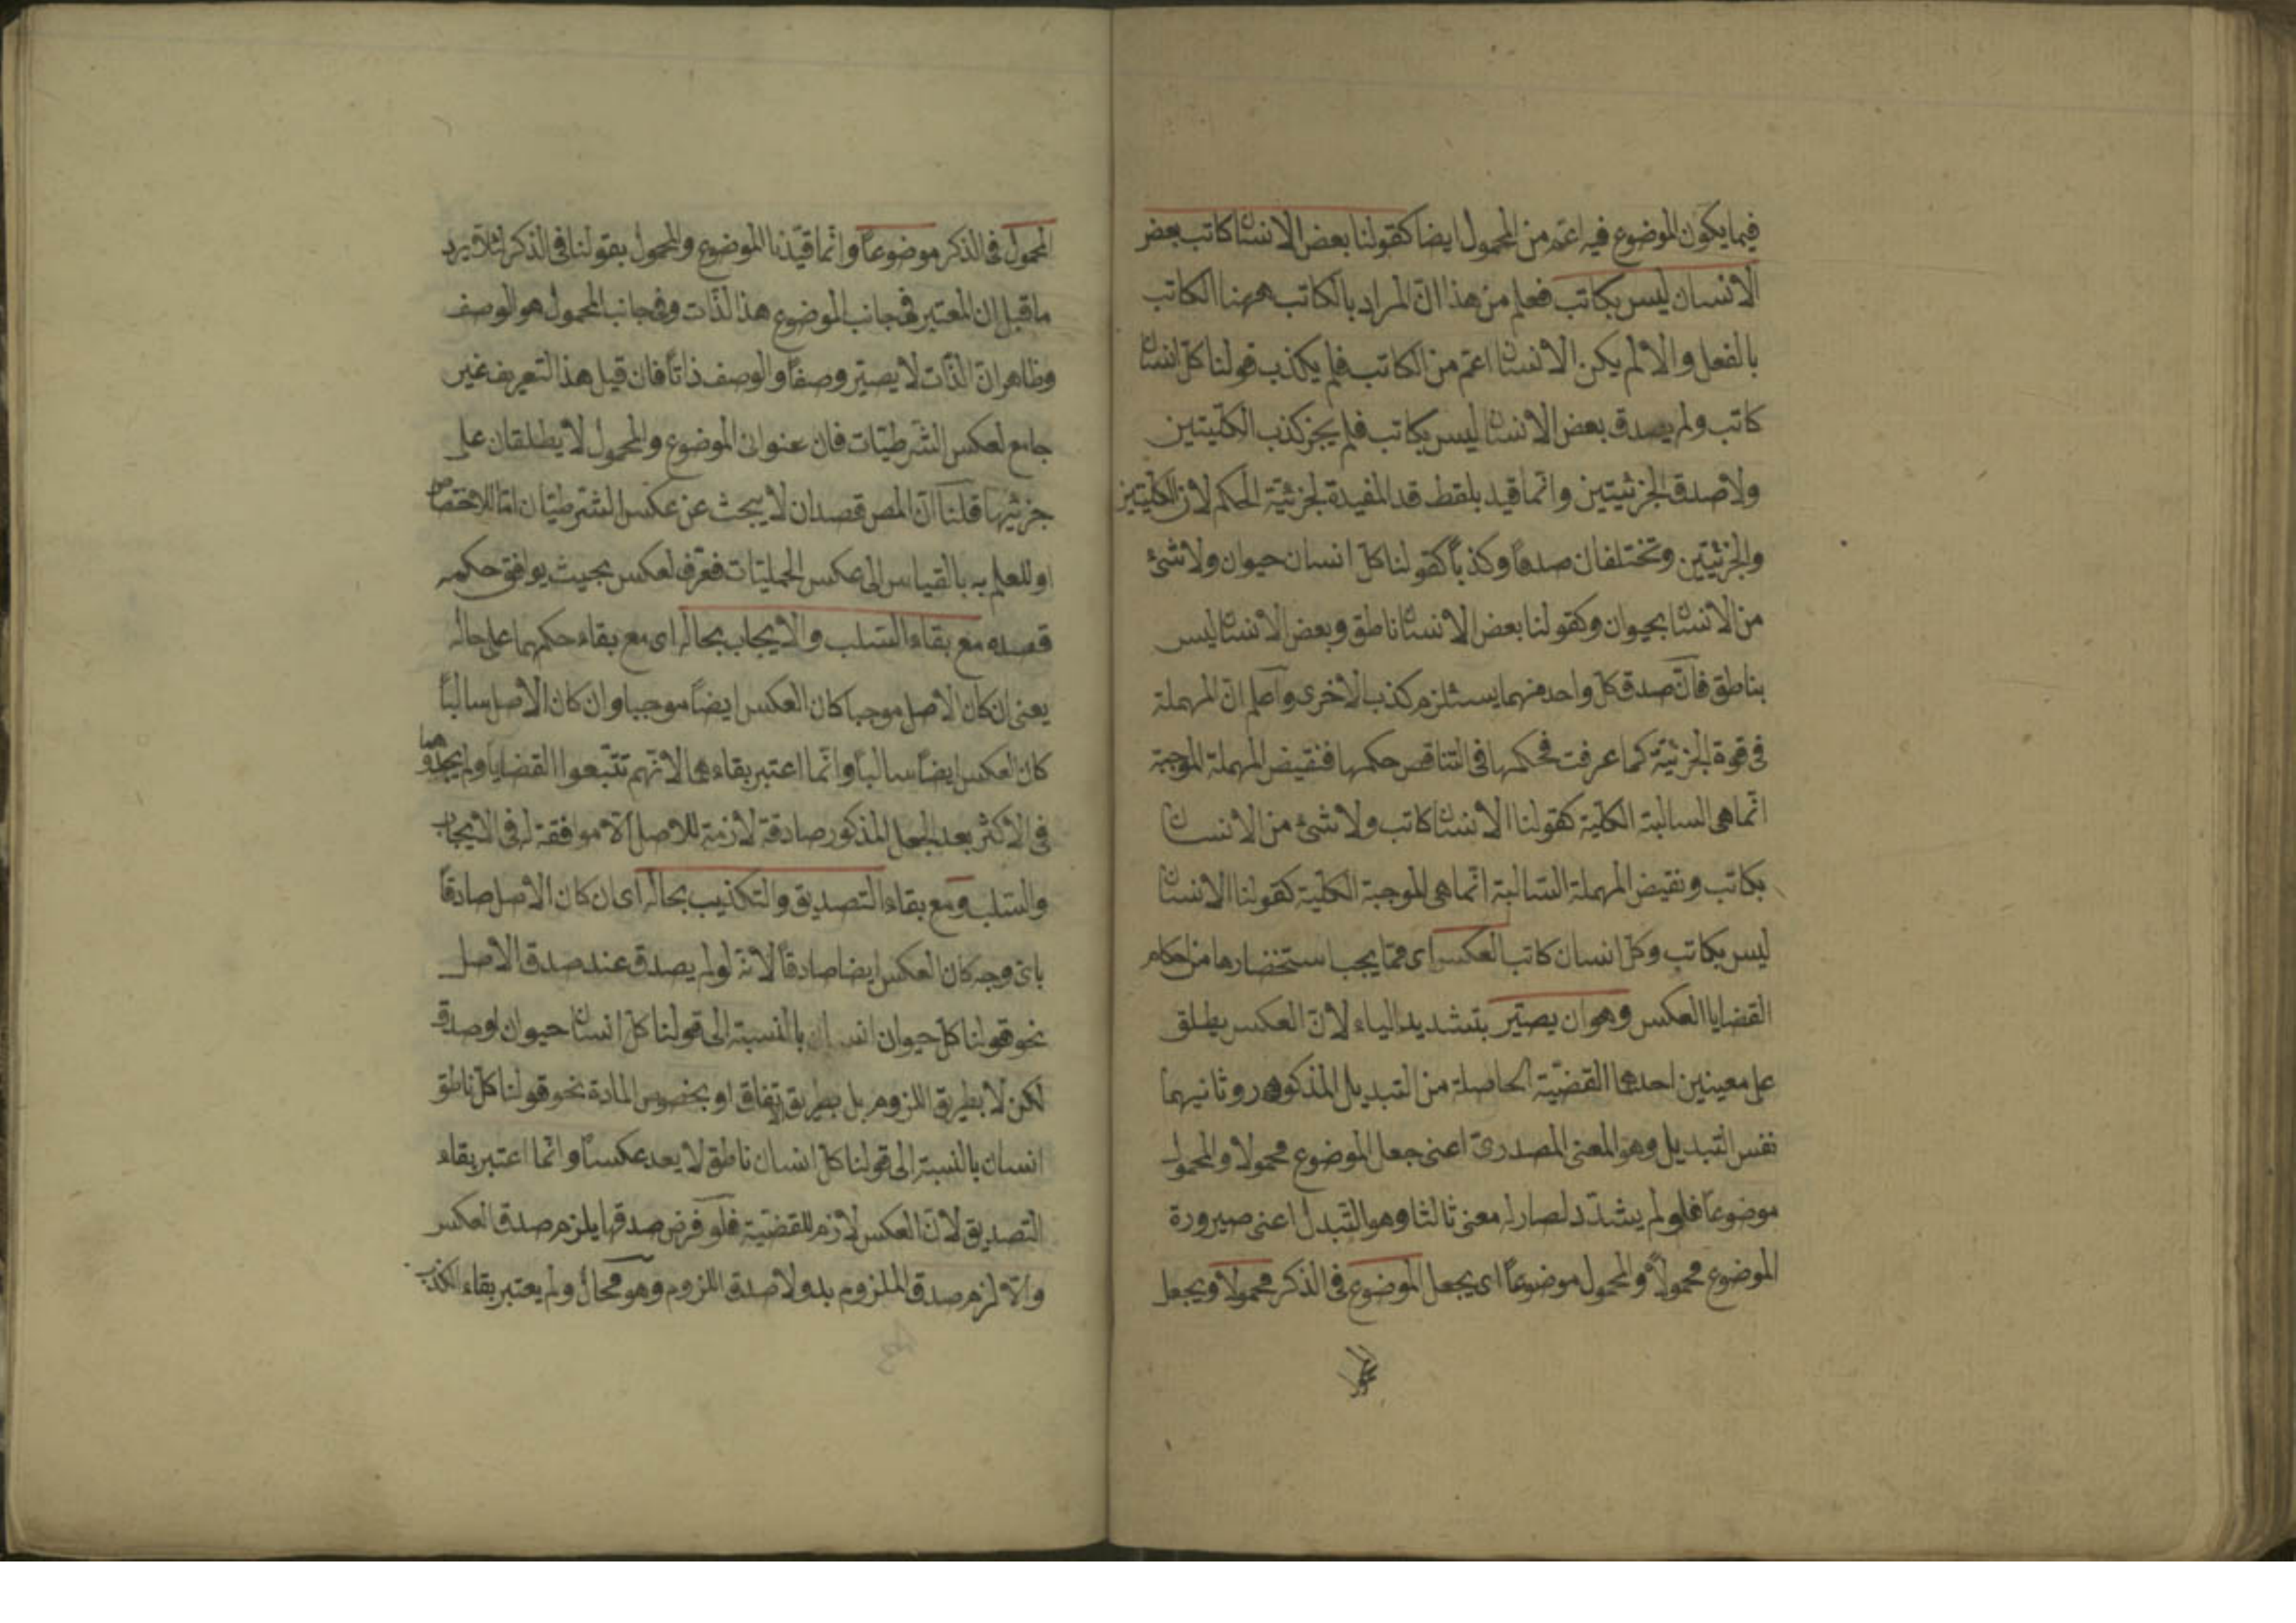 فيما يكون الموضوع فيه اعم من المحمول ايضا كقولنا بعض الانسان كاتب بعض
الانسان ليس بكاتب فعلم من هذا ان المراد بالكاتب ههنا الكاتب
بالفعل والا لم يكن الانسان اعم من الكاتب فلم يكذب قولنا كل انسان
كاتب ولم يصدق بعض الانسان ليس بكاتب فلم يجز كذب الكليتين
ولا صدق الجزئيتين وانما قيد بلفظ قد المفيدة لجزئية الحكم لان الكليتين
والجزئيتين وتختلفان صدقا وكذبا كقولنا كل انسان حيوان ولا شئ
من الانسان بحيوان وكقولنا بعض الانسان ناطق وبعض الانسان ليس
بناطق فان صدق كل واحد منهما يستلزم كذب الاخرى واعلم ان المهملة
فى قوة الجزئية كما عرفت فحكمها فى التناقض حكمها فنقيض المهملة الموجبة
انما هى السالبة الكلية كقولنا الانسان كاتب ولا شئ من الانسان
بكاتب ونقيض المهملة السالبة انما هى الموجبة الكلية كقولنا الانسان
ليس بكاتب وكل انسان كاتب العكس اى مما يجب استحضارها من احكام
القضايا العكس وهو ان يصير بتشديد الياء لان العكس يطلق
على معنيين احدهما القضية الحاصلة من التبديل المذكور وثانيهما
نفس التبديل وهو المعنى المصدرى اعنى جعل الموضوع محمولا والمحمول
موضوعا فلو لم يشدد لصار له معنى ثالثا وهو التبدل اعنى صيرورة
الموضوع محمولا والمحمول موضوعا اى يجعل الموضوع فى الذكر محمولا ويجعل
المحمول فى الذكر موضوعا وانما قيدنا الموضوع والمحمول بقولنا فى الذكر لئلا يرد
ما قيل ان المعتبر فى جانب الموضوع هذا الذات وفى جانب المحمول هو الوصف
وظاهر ان الذات لا يصير وصفا والوصف ذاتا فان قيل هذا التعريف غير
جامع لعكس الشرطيات فان عنوان الموضوع والمحمول لا يطلقان على
جزئيها قلنا ان المص قصد ان لا يبحث عن عكس الشرطيتان اما للاختصاص
او للعلم به بالقياس الى عكس الحمليات فعرف العكس بحيث يوافق حكمه
قصده مع بقاء السلب والايجاب بحاله اى مع بقاء حكمهما على حاله
يعنى ان كان الاصل موجبا كان العكس ايضا موجبا وان كان الاصل سالبا
كان العكس ايضا سالبا وانما اعتبر بقاء هما لانهم تتبعوا القضايا ولم يجدوهما
فى الاكثر بعد الجعل المذكور صادقة لازمة للاصل الا موافقة له فى الايجاب
والسلب ومع بقاء التصديق والتكذيب بحاله اى ان كان الاصل صادقا
باى وجه كان العكس ايضا صادقا لانه لو لم يصدق عند صدق الاصل
نحو قولنا كل حيوان انسان بالنسبة الى قولنا كل انسان حيوان او صدق
لكن لا بطريق اللزوم بل بطريق اتفاق او بخصوص المادة نحو قولنا كل ناطق
انسان بالنسبة الى قولنا كل انسان ناطق لا يعد عكسا وانما اعتبر بقاء
التصديق لان العكس لازم للقضية فلو فرض صدقها يلزم صدق العكس
والا لزم صدق الملزوم بدون لا صدق اللزوم وهو محال ولم يعتبر بقاء الكذب